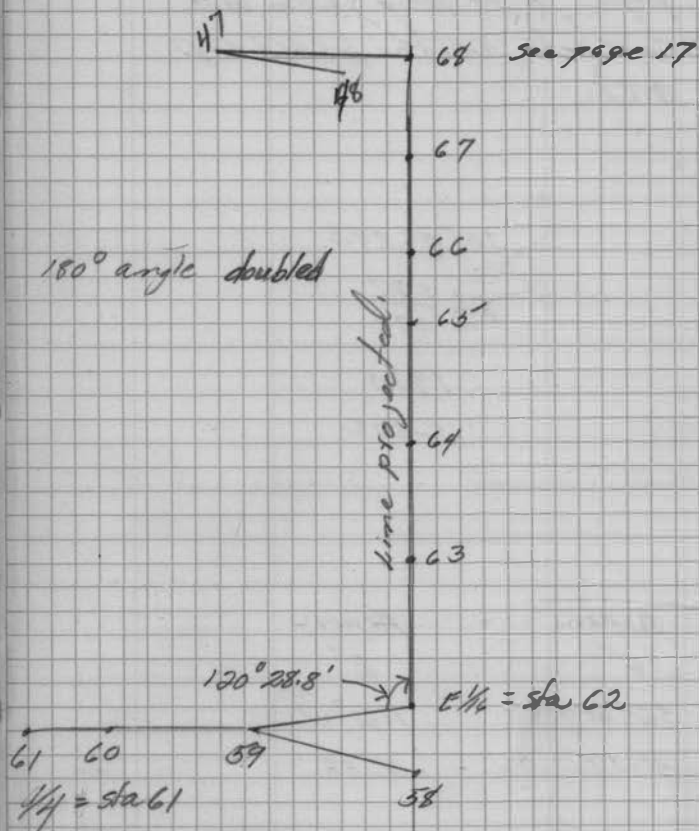 47
68 see page 17
48
67
66
180° angle doubled
65
Line projected.
64
63
120° 28.8'
E 1/16 = sta 62
61 60 59
58
1/4 = sta 61